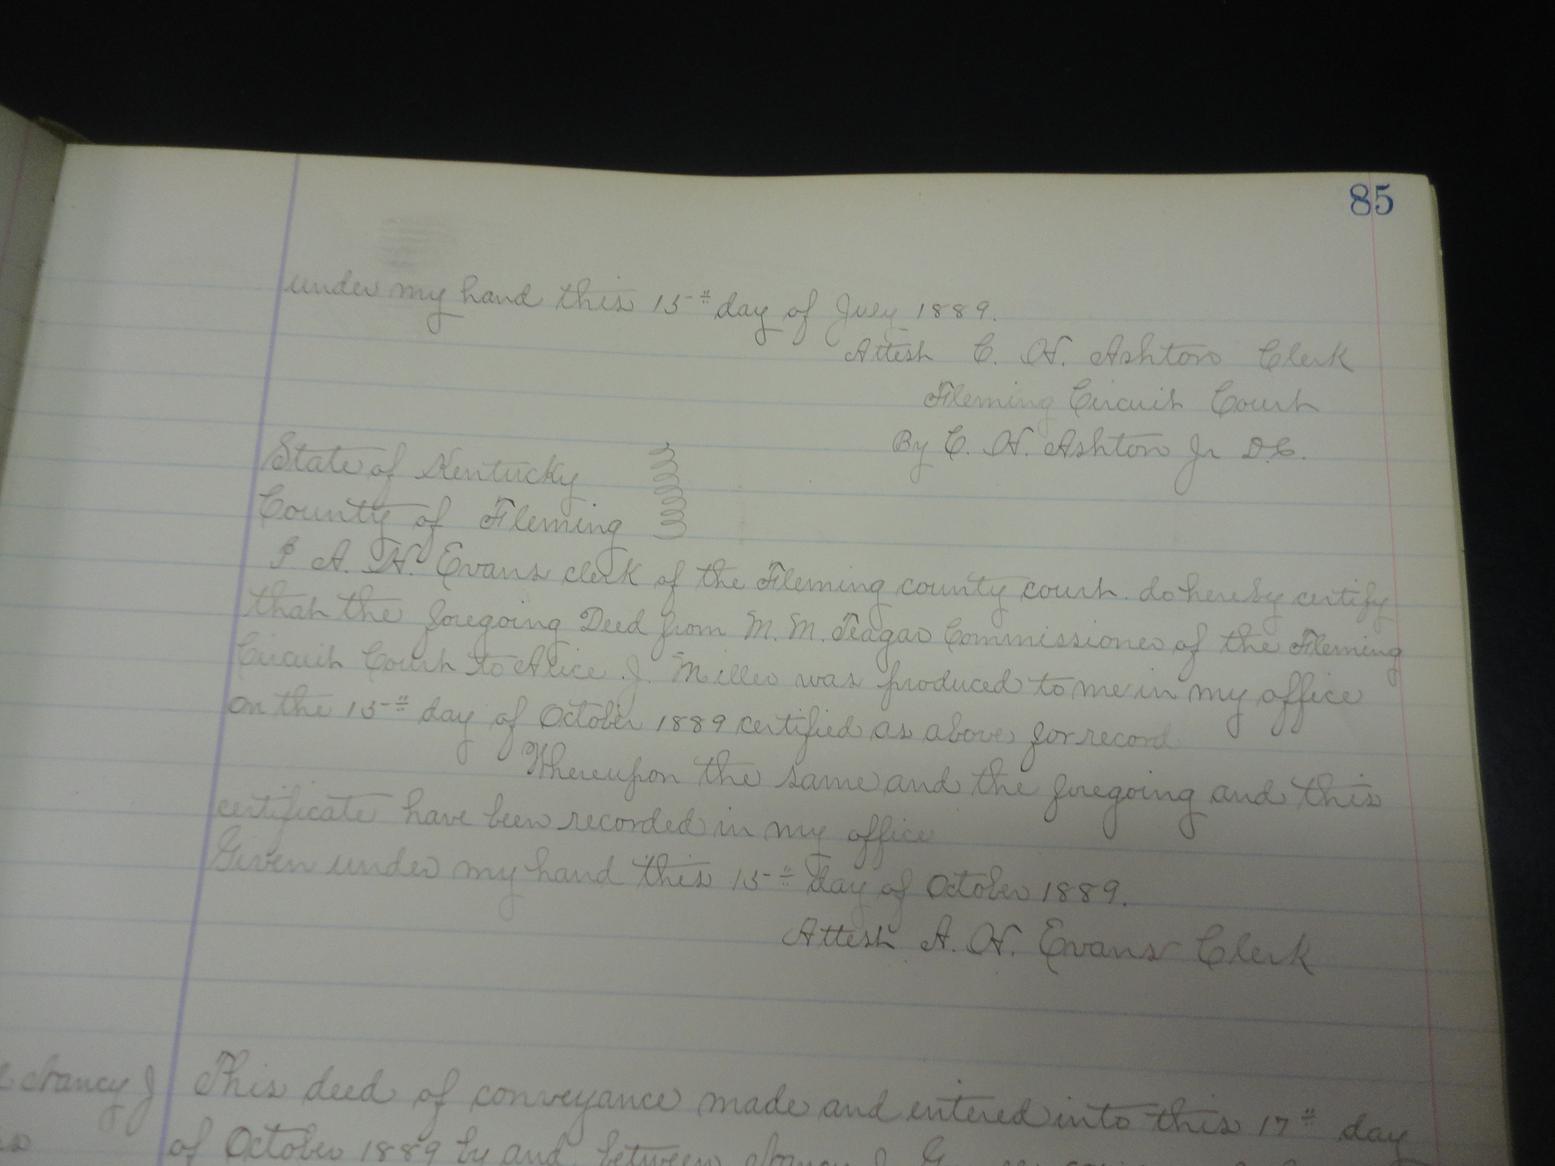 85
under my hand this 15th day of July 1889.
Attest C. N. Ashton Clerk
Fleming Circuit Court
By C. N. Ashton Jr D.C.
State of Kentucky
County of Fleming
I A. N. Evans clerk of the Fleming county court do hereby certify
that the foregoing Deed from M. M. Teagar Commissioner of the Fleming
Circuit Court to Alice J. Miller was produced to me in my office
on the 15th day of October 1889 certified as above for record
Whereupon the same and the foregoing and this
certificate have been recorded in my office
Given under my hand this 15th day of October 1889.
Attest A. N. Evans Clerk
This deed of conveyance made and entered into this 17th day
of October 1889 by and between